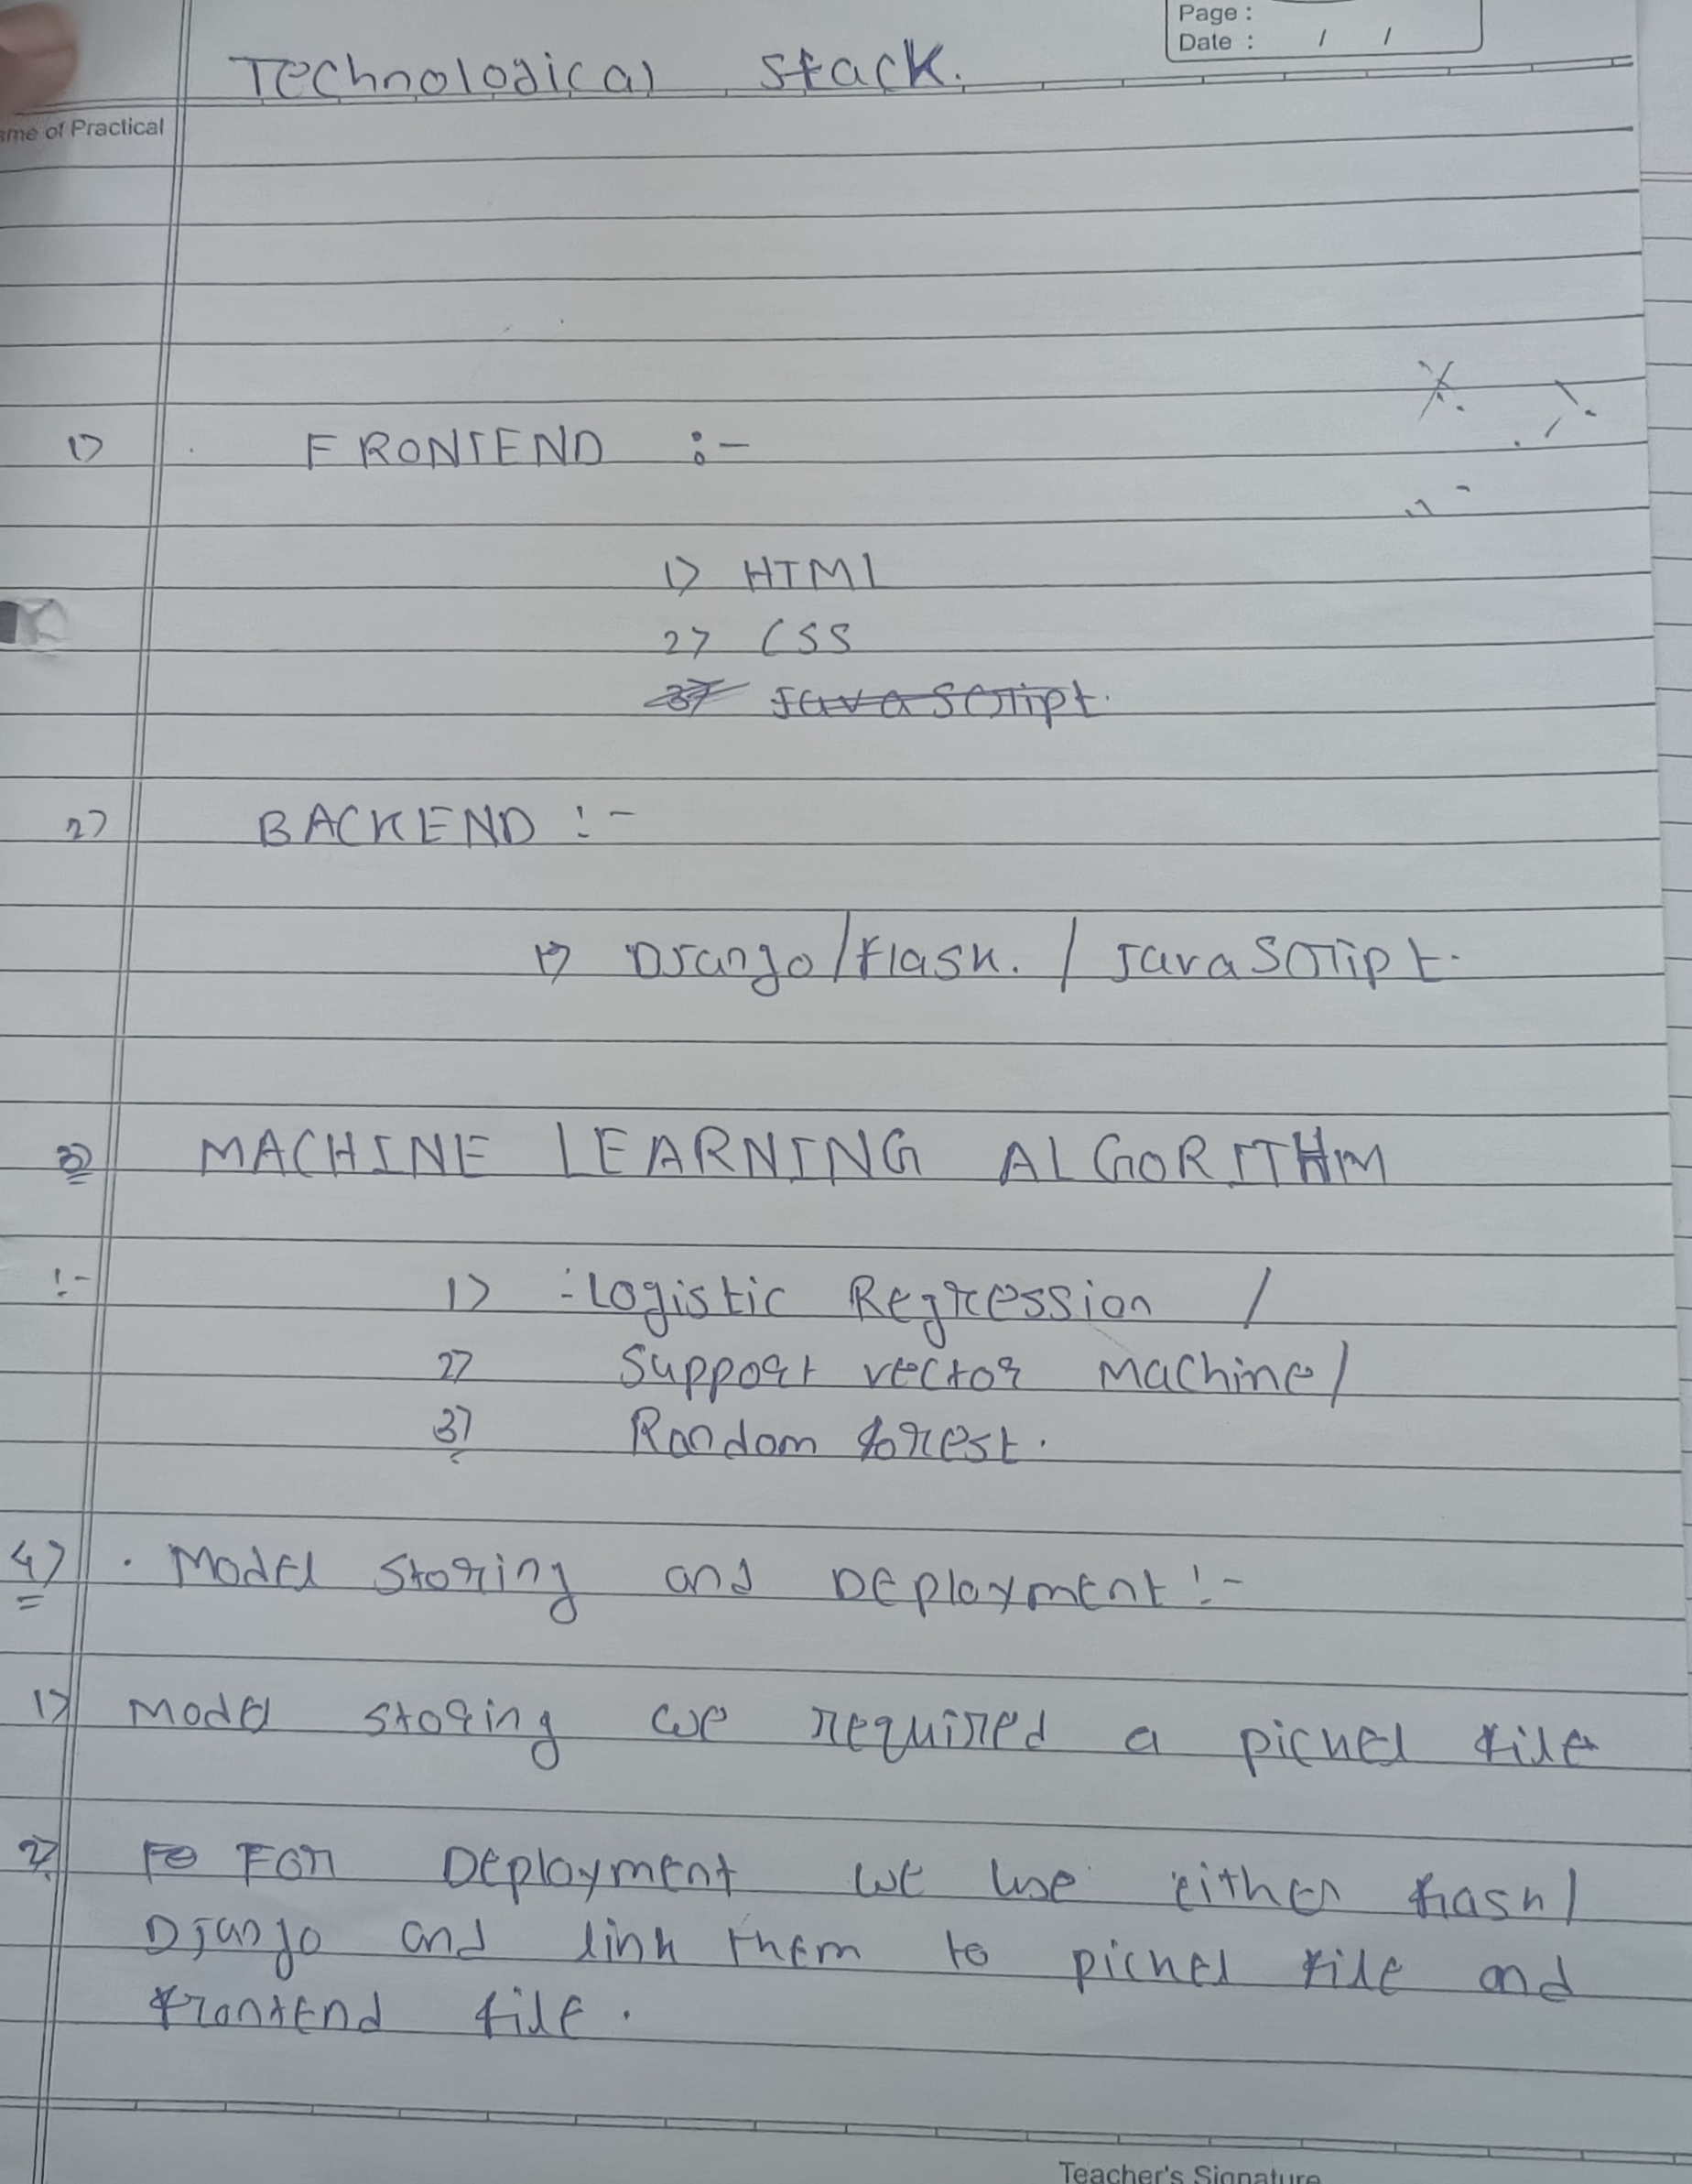 Page :
Date : / /
Technological stack.
ame of Practical
1) FRONTEND :-
1) HTML
2) CSS
3) JavaScript.
2) BACKEND :-
1) Django/Flask. / JavaScript.
3) MACHINE LEARNING ALGORITHM
:- 1) Logistic Regression /
2) Support vector Machine/
3) Random forest.
4) . Model Storing and Deployment :-
1) Model storing we required a pickel file
2) Fo For Deployment we use either flask/
Django and link them to pickel file and
frontend file.
Teacher's Signature